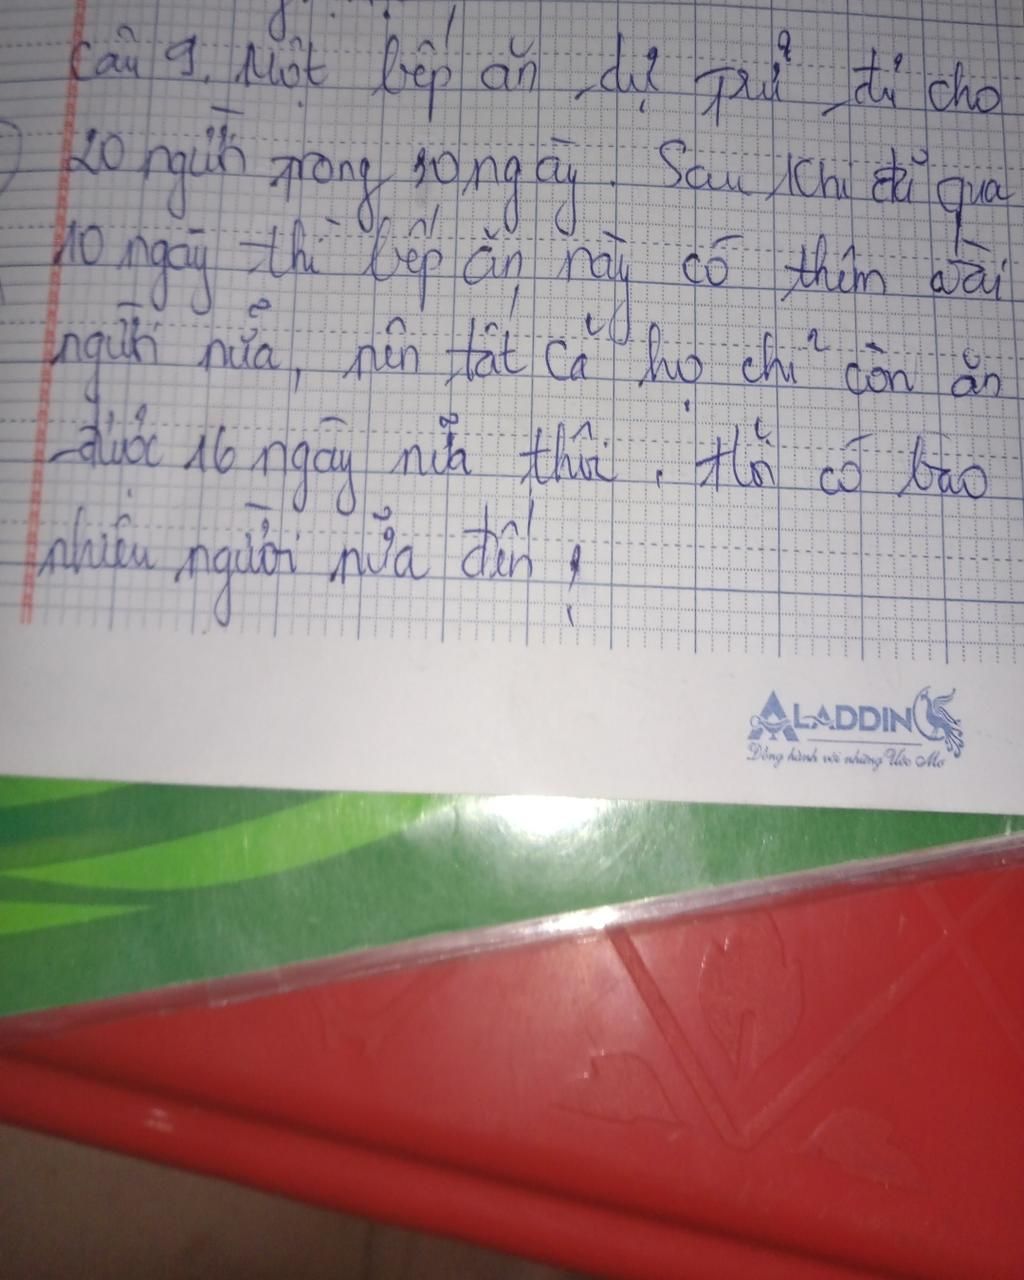 Câu 9. Một bếp ăn dự trử đủ cho
20 người trong 30 ngày. Sau khi đã qua
10 ngày thì bếp ăn này có thêm vài
người nữa, nên tất cả họ chỉ còn ăn
được 16 ngày nữa thôi. Hỏi có bao
nhiêu người nữa đến
ALADDIN
Đồng hành với những Ước Mơ